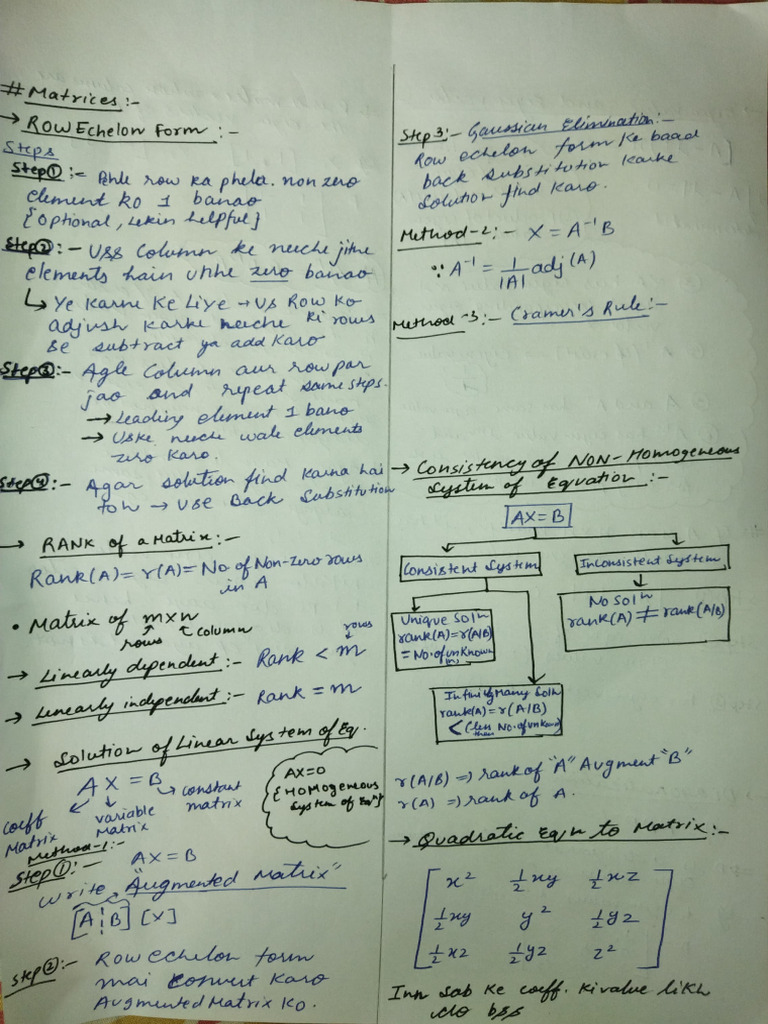 # Matrices :-
→ ROW Echelon Form :-
Steps
Step ① :- Phle row ka phela non zero
element ko 1 banao
{Optional, lekin helpful}
Step ② :- Uss Column ke neeche jitne
elements hain unhe zero banao
↳ Ye Karne Ke Liye → Us Row Ko
adjust karke neeche ki rows
se subtract ya add Karo
Step ③ :- Agle Column aur row par
jao and repeat same steps.
→ Leading element 1 bano
→ Uske neeche wale elements
zero Karo.
Step ④ :- Agar solution find karna hai
toh → use Back Substitution
→ RANK of a matrix :-
Rank(A) = r(A) = No of Non-zero rows
in A
• Matrix of m×n
rows column
→ Linearly dependent :- Rank < m
rows
→ Linearly independent :- Rank = m
→ Solution of Linear System of Eq.
AX = B
coeff Matrix
variable Matrix
constant matrix
AX=0
{HOMOgeneous
System of Eqⁿ}
Method-1:-
Step ① :- AX = B
Write "Augmented Matrix"
[A ¦ B] [X]
Step ② :- Row echelon form
mai convert Karo
Augmented Matrix Ko.
Step 3 :- Gaussian Elimination :-
Row echelon form Ke baad
back substitution karke
solution find Karo.
Method-2 :- X = A⁻¹B
∵ A⁻¹ = 1/|A| adj(A)
Method -3 :- Cramer's Rule :-
→ Consistency of NON-Homogeneous
System of Equation :-
AX = B
Consistent System
Inconsistent System
Unique Solⁿ
rank(A) = r(A/B)
= No. of unknown
No Solⁿ
rank(A) ≠ rank(A/B)
Infinitely Many Solⁿ
rank(A) = r(A/B)
< (less than No. of unknown
r(A/B) => rank of "A" Augment "B"
r(A) => rank of A.
→ Quadratic Eqn to Matrix :-
[ x² ½xy ½xz
½xy y² ½yz
½xz ½yz z² ]
Inn Sab Ke coeff. Ki value likh
do bss